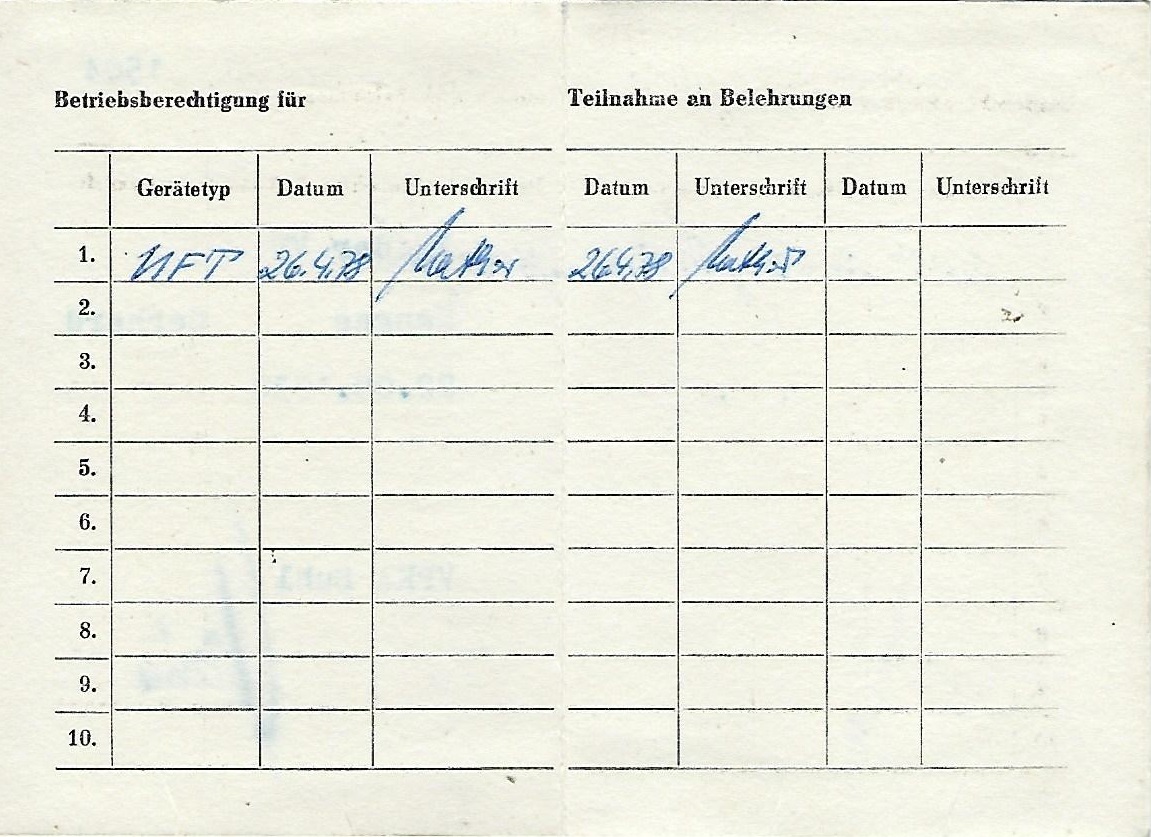 Betriebsberechtigung für
Teilnahme an Belehrungen
Gerätetyp Datum Unterschrift Datum Unterschrift Datum Unterschrift
1. UFT 26.4.78 26.4.78
2.
3.
4.
5.
6.
7.
8.
9.
10.